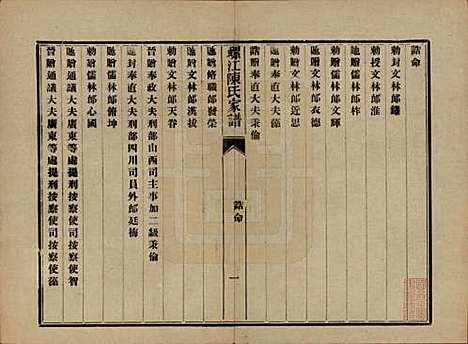 誥命
勅封文林郎鏸
勅授文林郎淮
勅贈儒林郎柞
勅贈文林郎文輝
馳贈文林郎衣德
勅贈文林郎近思
誥贈奉直大夫藻
誥贈奉直大夫秉倫
螺江陳氏家譜
誥命
一
馳贈脩職郎發榮
馳贈文林郎漢拔
勅贈文林郎天眷
晉贈奉政大夫刑部山西司主事加二級秉倫
馳封奉直大夫刑部四川司員外郎廷梅
馳贈儒林郎俯坤
勅贈儒林郎心國
晉贈通議大夫廣東等處提刑按察使司按察使智
晉贈通議大夫廣東等處提刑按察使司按察使藻